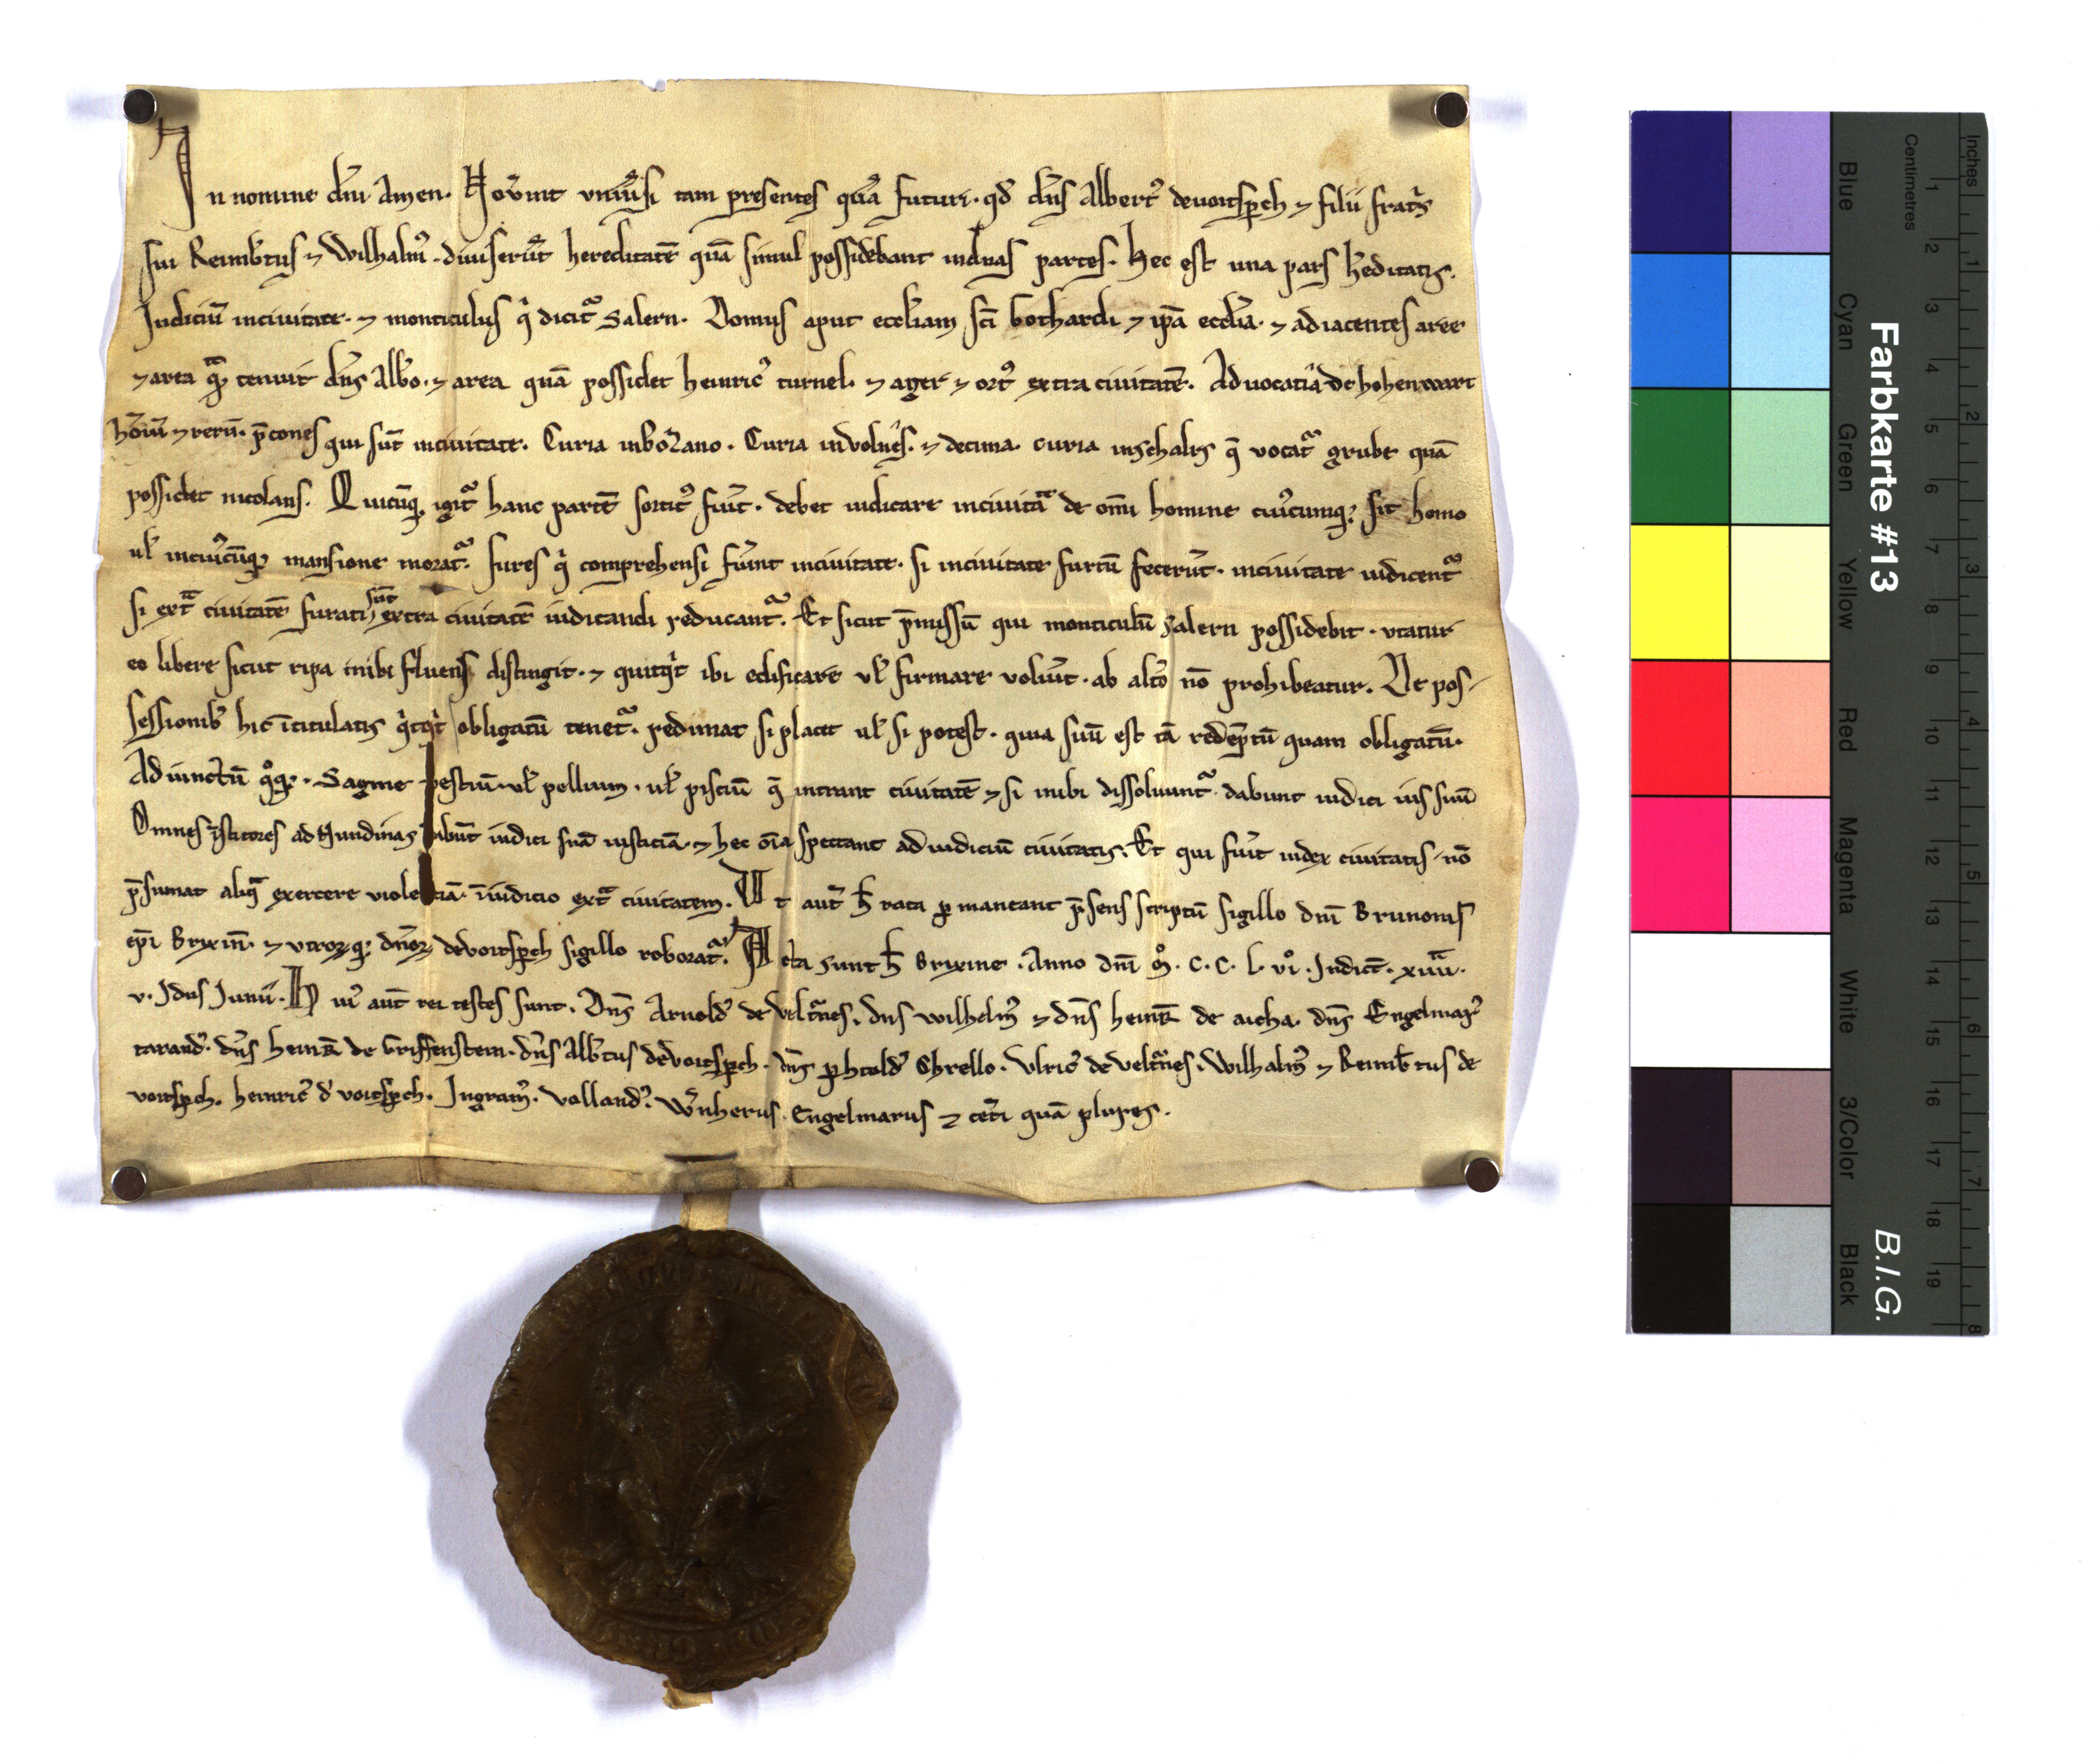 In nomine dn̄i Amen. Nov̄int univ̄si tam presentes quā futuri. qd̄ dn̄s Albert᷒ devoitsp̄ch ⁊ filii frat̄s
sui Reimb̄tus ⁊ Wilhalm᷒. diviserūt hereditatē quā simul possidebant induas partes. Hec est una pars h̄editatis.
Judiciū incivitate. ⁊ monticulus qⁱ dicit᷑ Salern. Domus aput eccl̄iam sc̄i Gothardi ⁊ ip̄a eccl̄ia. ⁊ adiacentes aree
⁊ area q̄ꝫ tenuit dn̄s Alb̄o. ⁊ area quā possidet heinric᷒ turnel. ⁊ ager ⁊ ort᷒ extra civitatē. Advocatia de hohenwart
ho̅iū ⁊ rerū. p̄cones qui sūt incivitate. Curia inbozano. Curia involn̄s. ⁊ decima. curia inschalrs q̄ vocat᷑ grube quā
possidet nicolaus. Quicūqꝫ igit᷑ hanc partē sortit᷒ fu̅it. debet iudicare incivitāe de om̄i homine cui᷒cumqꝫ sit homo
ul̄ incui᷒cūqꝫ mansione morat᷑. fures qⁱ comprehensi fu̅int incivitate. si incivitate furtū fecer̄it. incivitate iudicent᷑
si extᵃ civitatē furati sūt extra civitatē iudicandi reducant᷑. Et sicut p̄missū qui monticulū Salern possidebit. utatur
eo libere sicut ripa inibi fluens distingit. ⁊ quitqⁱt ibi edificare vl̄ firmare volu̅it. ab alt̄o nō prohibeatur. De pos-
sessionib᷒ hic ītitulatis qⁱtqⁱt obligatū tenet᷑. redimat si placet ul̄ si potest. quia suū est tā redēptū quam obligatū.
Adiunctū qᵒqꝫ. Sagme vestiū. ul̄ pellium. ul̄ pisciū q̄ intrant civitatē ⁊ si inibi dissolvunt᷑. dabunt iudici ius suū
Omnes īstitores ad Nundinas dabūt iudici suā iusticiā. ⁊ hec o̅ia spectant ad iudiciū civitatis. Et qui fu̅it iudex civitatis nō
p̄sumat aliqᵃ exercere violentiā. ī iudicio extᵃ civitatem. Ut aut̄ h̄ rata ꝑmaneant p̄sens scriptū sigillo dn̄i Brunonis
ep̄i Brixin̄. ⁊ utroꝝqꝫ dn̄oꝝ devoitsp̄ch sigillo roborat᷑. Acta sunt h̄ Brixine. Anno dn̄i m̊. c. c. l. vi̊. Indict̄. xiiiiᵃ.
v. Idus Junii. Hui᷒ aut̄ rei testes sunt. Dn̄s Arnold᷒ de veltᵘnes. dn̄s wilhelm᷒ ⁊ dn̄s heinR̄ de aicha. dn̄s Engelmar᷒
tarand᷒. dn̄s heinR̄ de Griffenstein. dn̄s Alb̄tus devoitsp̄ch. dn̄s ꝑhtold᷒ Chrello. Ulric᷒ de veltᵘnes. Wilhalm᷒ ⁊ Reimb̄tus de
voitsp̄ch. heinric᷒ d̄ voitsp̄ch. Ingram᷒. Volland᷒. W̄nherus. Engelmarus ⁊ cet̄i quā plures.
Farbkarte #13
B.I.G.
Blue Cyan Green Yellow Red Magenta White 3/Color Black
Centimetres
1 2 3 4 5 6 7 8 9 10 11 12 13 14 15 16 17 18 19
Inches
1 2 3 4 5 6 7 8